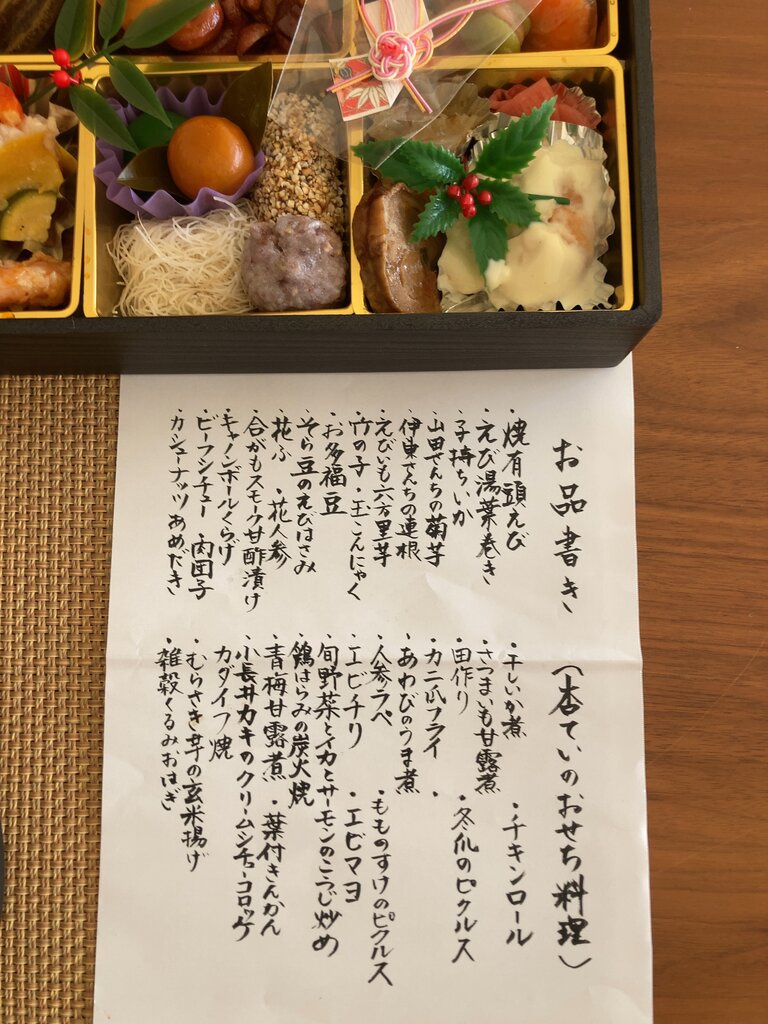 お品書き (杏ていのおせち料理)
・焼有頭えび
・えび湯葉巻き
・子持ちいか
・山田さんちの菊芋
・伊東さんちの蓮根
・えびいも六方里芋
・竹の子 ・玉こんにゃく
・お多福豆
・そら豆のえびはさみ
・花ふ ・花人参
・合がもスモーク甘酢漬け
・キャノンボールくらげ
・ビーフシチュー 肉団子
・カシューナッツあめだき
・干しいか煮 ・チキンロール
・さつまいも甘露煮
・田作り ・冬瓜のピクルス
・カニ爪フライ ・
・あわびのうま煮
・人参ラペ ・もものすけのピクルス
・エビチリ ・エビマヨ
・旬野菜とイカとサーモンのこうじ炒め
・鶏はらみの炭火焼
・青梅甘露煮 ・葉付きんかん
・小長井カキのクリームシチューコロッケ
カダイフ焼
・むらさき芋の玄米揚げ
・雑穀くるみおはぎ